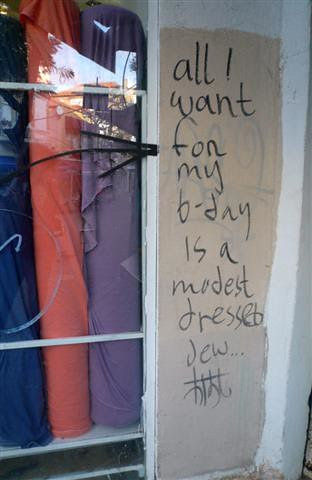 all I
want
for
my
b-day
is a
modest
dressed
Jew...